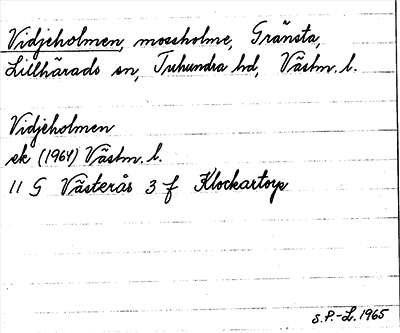 Vidjeholmen, mossholme, Gränsta,
Lillhärads sn, Tuhundra hd, Västm. l.
Vidjeholmen
ek (1964) Västm. l.
11 G Västerås 3 f Klockartorp
S.P.-L. 1965